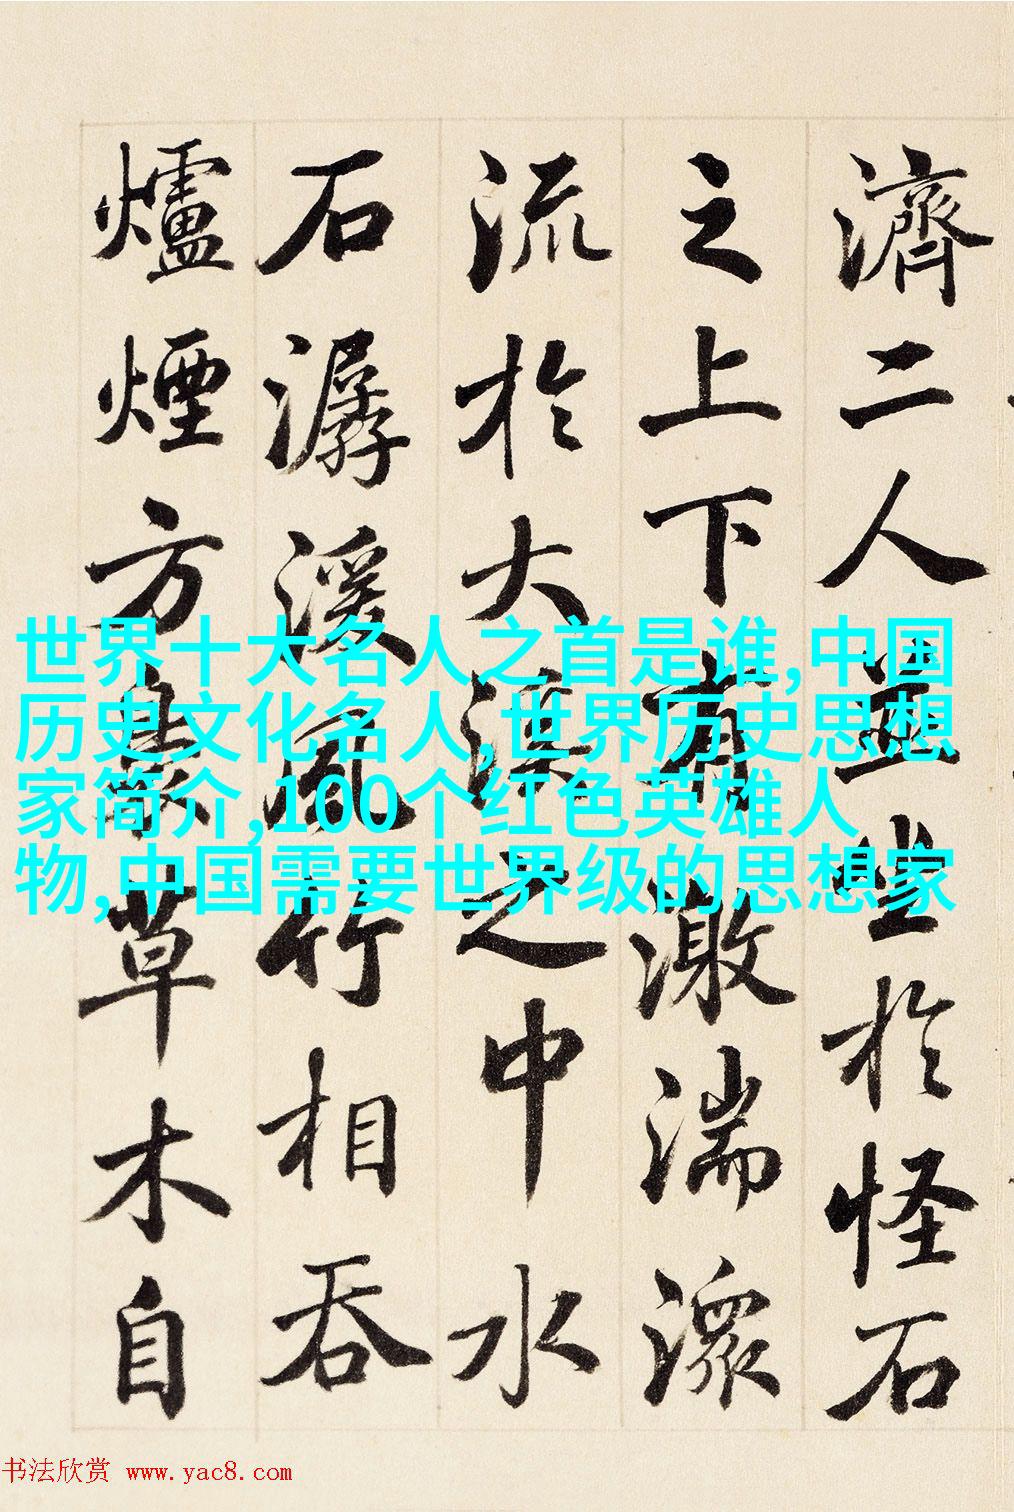 濟二人並坐於怪石
之上下有激湍潨
流於大溪之中水
石潺湲風竹相吞
爐煙方裊草木自
世界十大名人之首是谁,中国
历史文化名人,世界历史思想
家简介,100个红色英雄人
物,中国需要世界级的思想家
书法欣赏 www.yac8.com